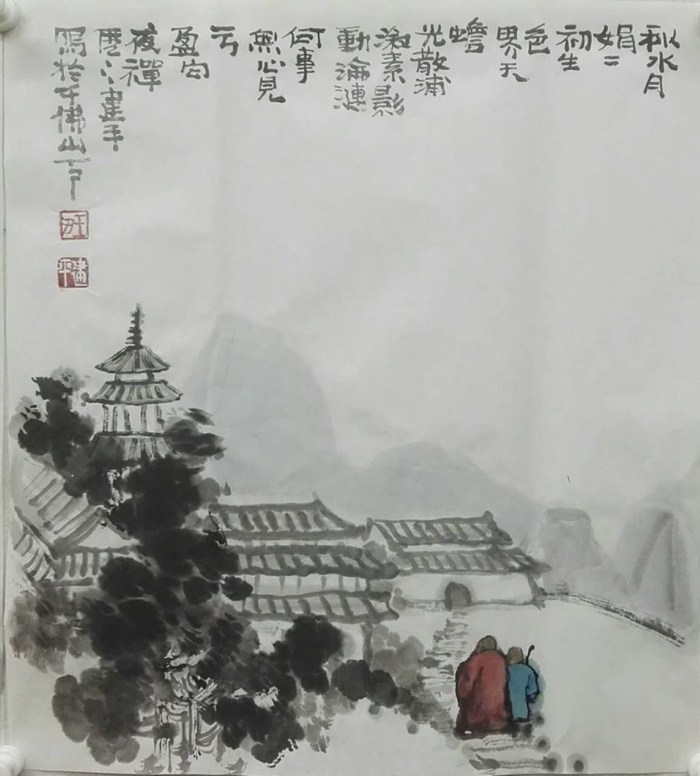 秋水月
娟二
初生
色
界天
蟾
光散浦
漵素影
動淪漣
何事
無心見
亏
盈向
夜禪
歷下畫平
寫於千佛山下